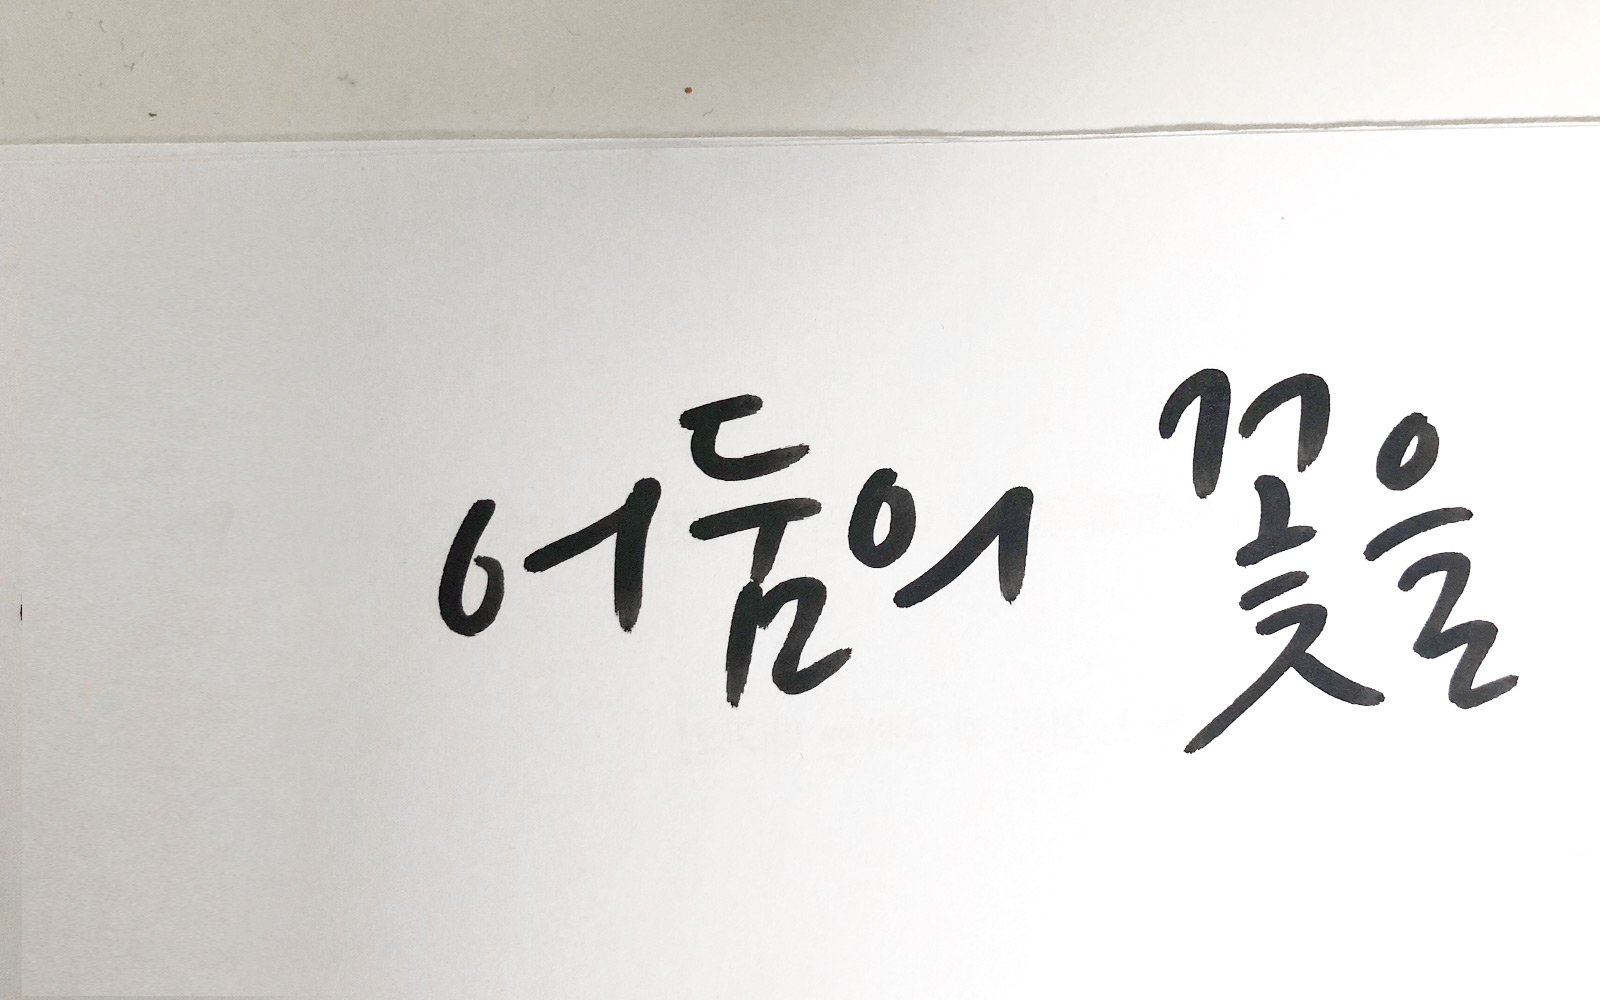 어둠의 꽃을